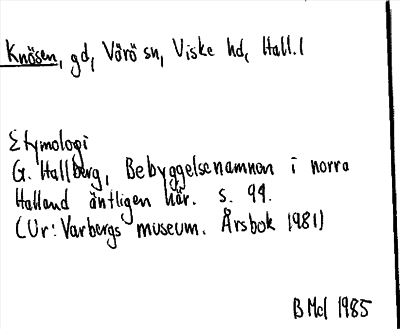 Knösen, gd, Värö sn, Viske hd, Hall. l
Etymologi
G. Hallberg, Bebyggelsenamnen i norra
Halland äntligen här. s. 99.
(Ur: Varbergs museum. Årsbok 1981)
BMcl 1985